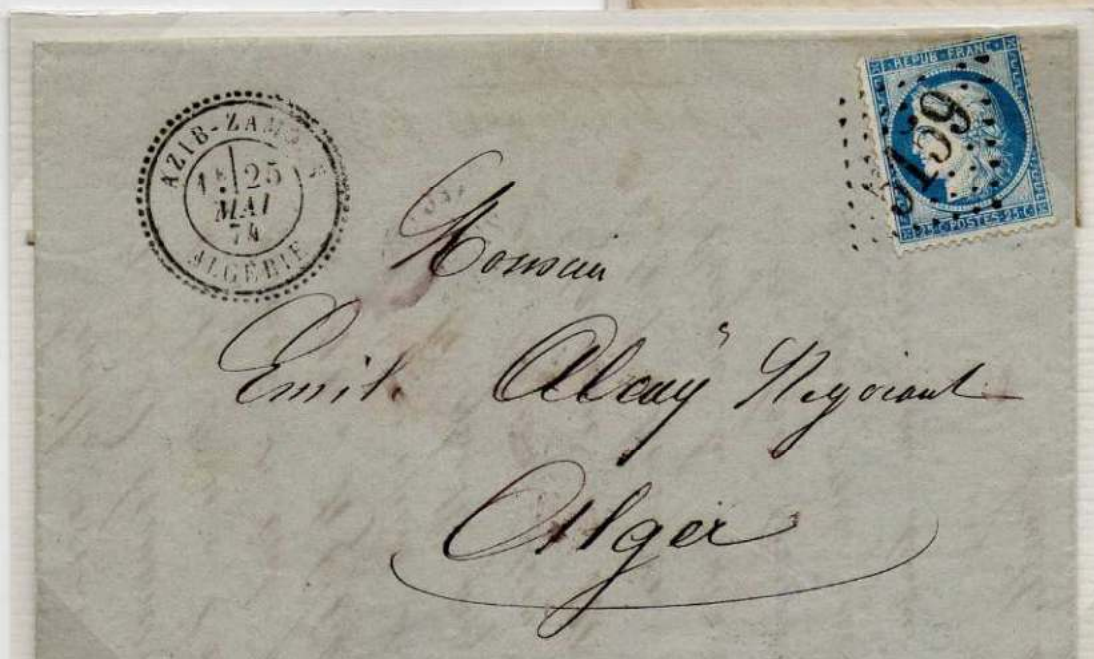 AZIB-ZAMOUN
1E 25
MAI
74
ALGÉRIE
REPUB·FRANC
5159
25·C·POSTES·25·C
Monsieur
Emile Alcay Negociant
Alger